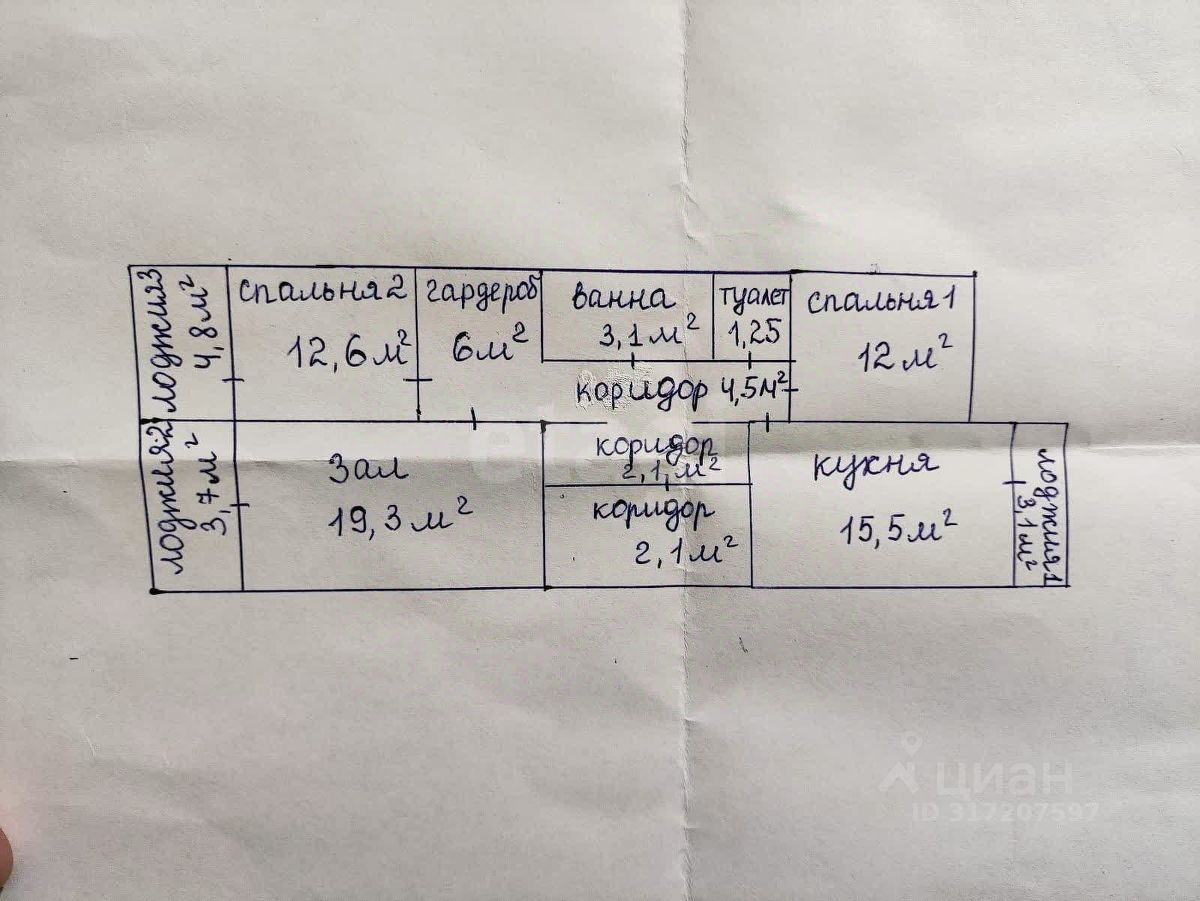 лоджия3
4,8м²
спальня2
12,6м²
гардероб
6м²
ванна
3,1м²
туалет
1,25
спальня1
12м²
коридор 4,5м²
лоджия2
3,7м²
зал
19,3м²
коридор
2,1м²
коридор
2,1м²
кухня
15,5м²
лоджия1
3,1м²
циан
ID 317207597